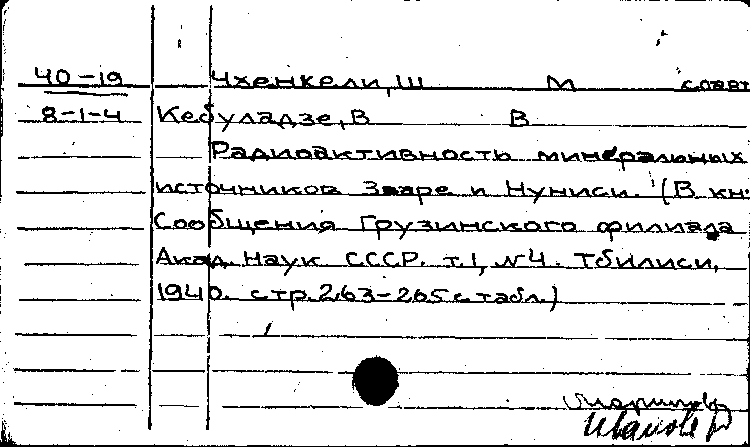 40-19 Чхенкели, Ш М соавт
8-1-4 Кебуладзе, В В
Радиоактивность минеральных
источников Зваре и Нуниси. (В кн:
Сообщения Грузинского филиала
Акад. Наук СССР. т.1, №4. Тбилиси,
1940. стр. 263-265 с табл.)